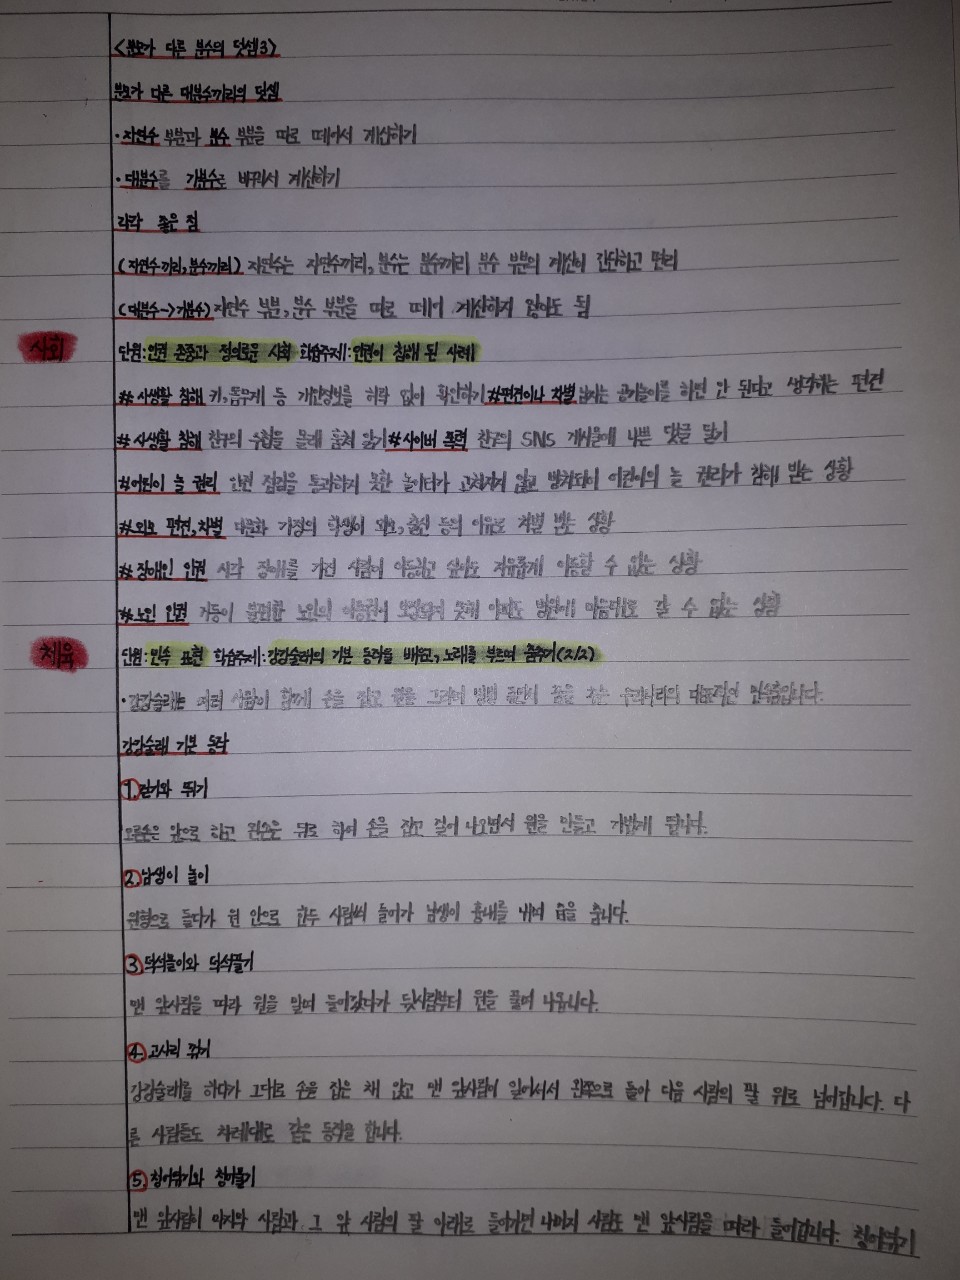 <분모가 다른 분수의 덧셈3>
분모가 다른 대분수끼리의 덧셈
·자연수 부분과 분수 부분을 따로 떼어서 계산하기
·대분수를 가분수로 바꿔서 계산하기
각각 좋은 점
(자연수끼리,분수끼리) 자연수는 자연수끼리, 분수는 분수끼리 분수 부분의 계산이 간단하고 편리
(대분수→가분수) 자연수 부분, 분수 부분을 따로 떼어 계산하지 않아도 됨
사회 단원:인권 존중과 정의로운 사회 학습주제:인권이 침해 된 사례
#사생활 침해 키,몸무게 등 개인정보를 허락 없이 확인하기 #편견이나 차별 남자는 공기놀이를 하면 안 된다고 생각하는 편견
#사생활 침해 친구의 수첩을 몰래 훔쳐 읽기 #사이버 폭력 친구의 SNS 게시물에 나쁜 댓글 달기
#어린이 놀 권리 안전 점검을 통과하지 못한 놀이터가 고쳐지지 않고 방치되어 어린이의 놀 권리가 침해 받는 상황
#외모 편견,차별 다문화 가정의 학생이 외모,출신 등의 이유로 차별 받는 상황
#장애인 인권 시각 장애를 가진 사람이 이동하고 싶어도 자유롭게 이동할 수 없는 상황
#노인 인권 거동이 불편한 노인의 이동권이 보장되지 못해 아파도 병원에 마음대로 갈 수 없는 상황
체육 단원:민속 표현 학습주제:강강술래의 기본 동작을 배우고, 노래를 부르며 춤추기(2/2)
·강강술래는 여러 사람이 함께 손을 잡고 원을 그리며 빙빙 돌면서 춤을 추는 우리나라의 대표적인 민속춤입니다.
강강술래 기본 동작
1.걷기와 뛰기
오른손은 앞으로 하고 왼손은 뒤로 하여 손을 잡고 걸어 나오면서 원을 만들고 가볍게 뜁니다.
2.남생이 놀이
원형으로 돌다가 원 안으로 한두 사람씩 들어가 남생이 흉내를 내며 춤을 춥니다.
3.덕석몰이와 덕석풀기
맨 앞사람을 따라 원을 말며 들어갔다가 뒷사람부터 원을 풀며 나옵니다.
4.고사리 꺾기
강강술래를 하다가 그대로 손을 잡은 채 앉고 맨 앞사람이 일어서서 왼쪽으로 돌아 다음 사람의 팔 위로 넘어갑니다. 다
른 사람들도 차례대로 같은 동작을 합니다.
5.청어엮기와 청어풀기
맨 앞사람이 마지막 사람과 그 앞 사람의 팔 아래로 들어가면 나머지 사람도 맨 앞사람을 따라 들어갑니다. 청어엮기